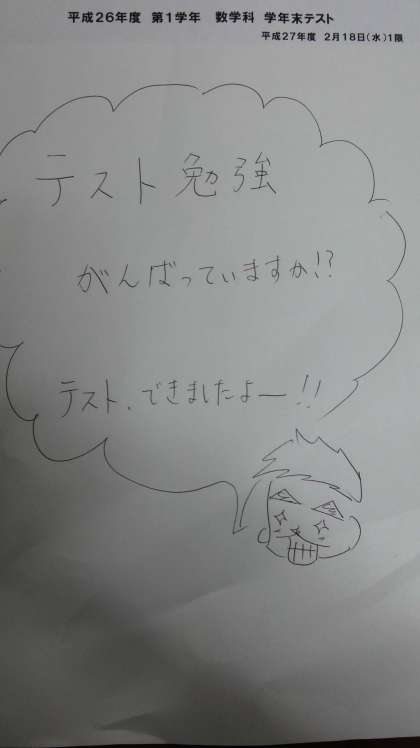 平成26年度 第1学年 数学科 学年末テスト
平成27年度 2月18日(水)1限
テスト勉強
がんばっていますか!?
テスト、できましたよー!!